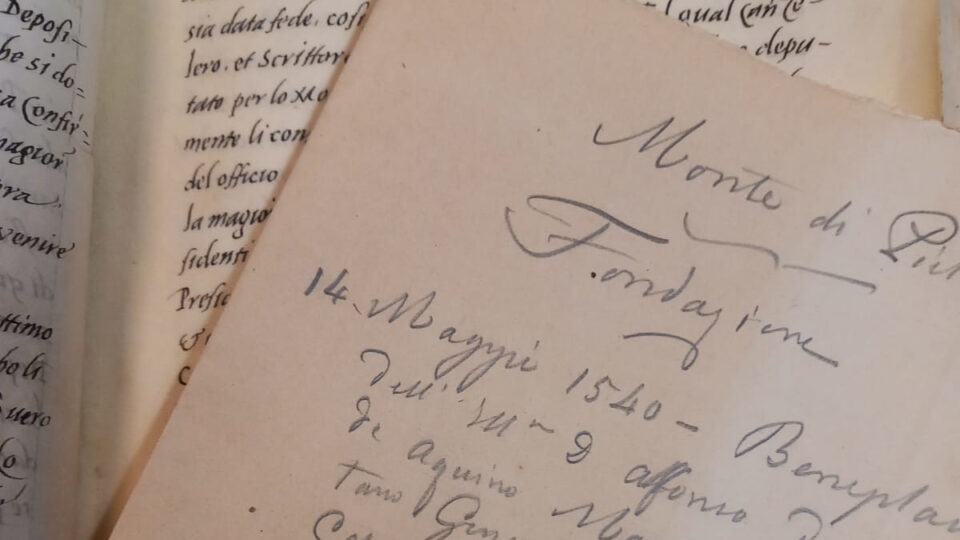 Deposi-
he si do=
a Confir=
magior
venire
ttimo
boli
uero
sia data fede, cosi
lero, et Scrittor
tato per lo
mente li con
del officio
la magior
sidenti
Prefic
qual Can
depu-
Monte di Piet
Fondazione
14. Maggio 1540 - Beneplac
dell' Ill D Affonso
de Aquino
tano